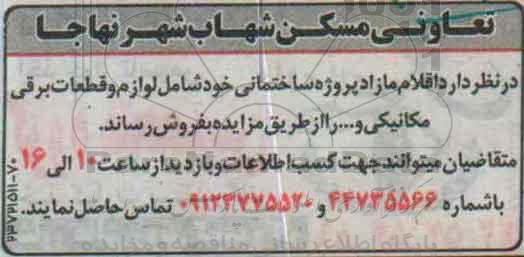 تعاونی مسکن شهاب شهر نهاجا
در نظر دارد اقلام مازاد پروژه ساختمانی خود شامل لوازم و قطعات برقی
مکانیکی و... را از طریق مزایده بفروش رساند.
متقاضیان میتوانند جهت کسب اطلاعات و بازدید از ساعت ۱۰ الی ۱۶
با شماره ۴۴۷۳۵۵۶۶ و ۰۹۱۲۴۷۷۵۵۲۰ تماس حاصل نمایند.